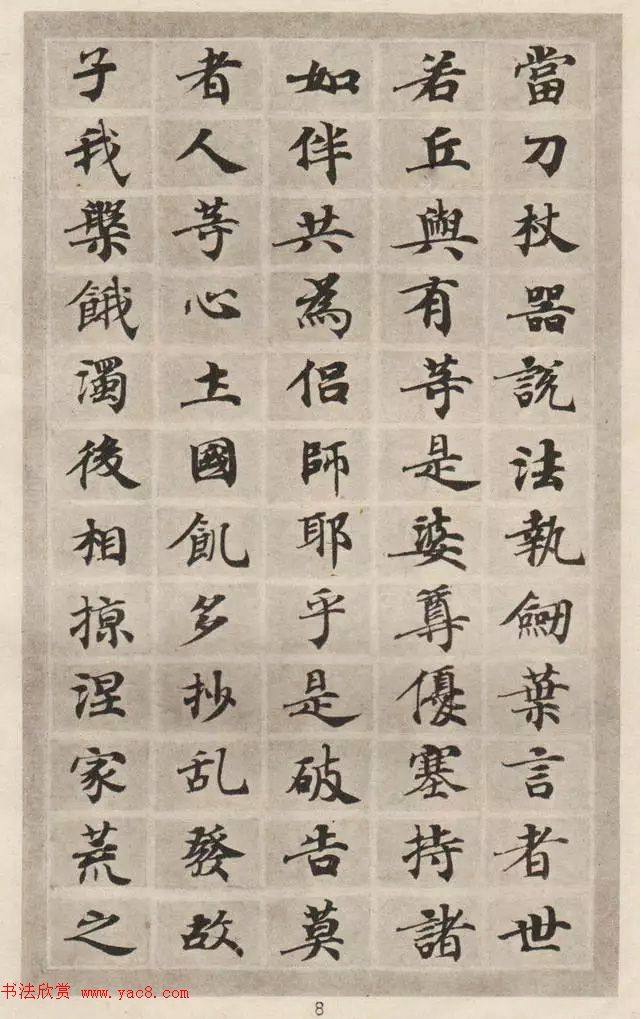 當刀杖器說法執劒葉言者世
若丘與有等是婆尊優塞持諸
如伴共為侶師耶乎是破告莫
者人等心土國飢多抄乱發故
子我槃餓濁後相掠涅家荒之
书法欣赏 www.yac8.com
8